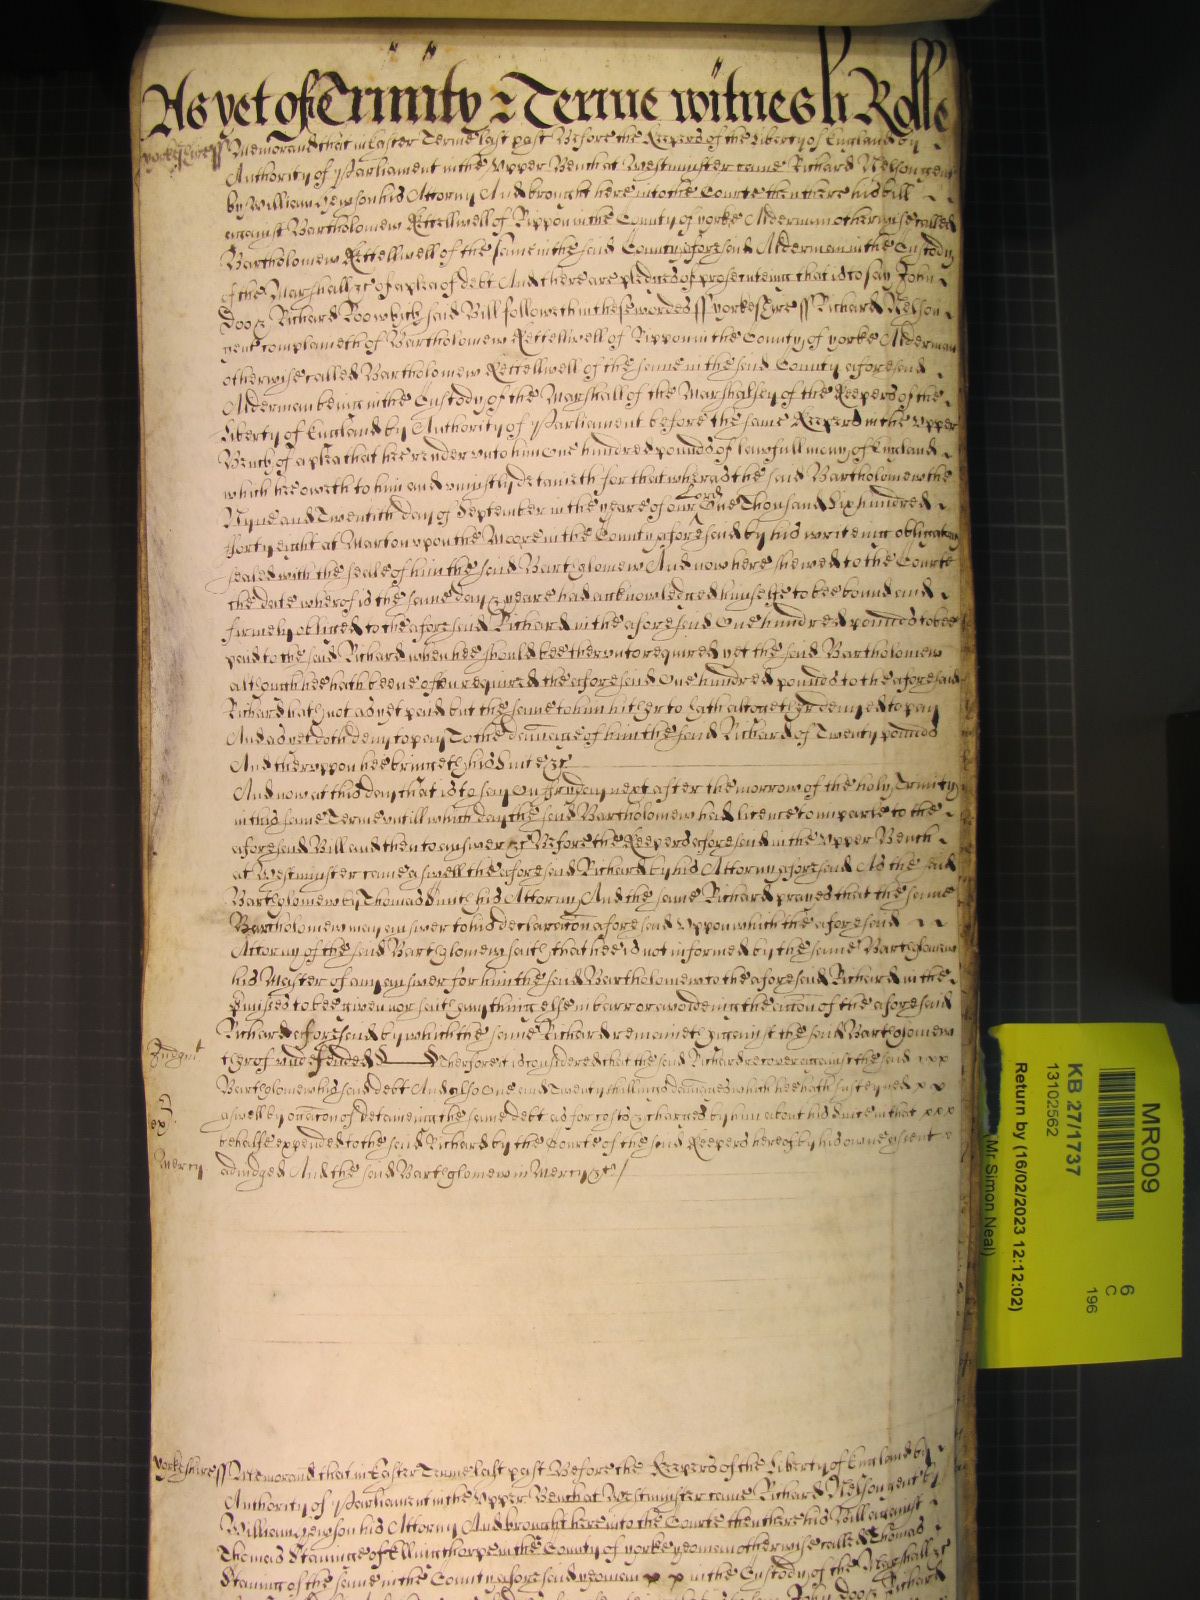 As yet of Trinity Terme witnes h Rolle
Yorkeshire ss Memorand that in Easter Terme last past Before the Keepers of the Liberty of England by
Authority of Parliament in the Upper Bench at Westminster came Richard Nelson gent
by William Hewson his Attorny And brought here into the Courte then there his bill
against Bartholomew Kettellwell of Rippon in the County of yorke Alderman otherwise called
Bartholomew Kettellwell of the same in the said County aforesaid Alderman in the Custody
of the Marshall &c of a plea of debt And there are pledges of prosecuteing that is to say John
Doo & Richard Roo which said Bill followeth in these wordes ss yorkeshire ss Richard Nelson
gent complaineth of Bartholomew Kettellwell of Rippon in the County of yorke Alderman
otherwise called Bartholomew Kettellwell of the same in the said County aforesaid
Alderman being in the Custody of the Marshall of the Marshalsey of the Keepers of the
Liberty of England by Authority of Parliament before the same Keepers in the Upper
Bench of a plea that hee render unto him One hundred pounds of lawfull mony of England
which hee oweth to him and uniustly detaineth for that wheras the said Bartholomew the
Nyne and Twentith day of September in the yeare of our Lord One Thousand Six hundred
fforty eight at Marton upon the Moore in the County aforesaid by his writeing obligatory
sealed with the seale of him the said Bartholomew And now here shewed to the Courte
the date wherof is the same day & yeare had acknowledged himselfe to bee bound and
firmely obliged to the aforesaid Richard in the aforesaid One hundred pounds to bee
paid to the said Richard when hee should bee therunto required yet the said Bartholomew
although hee hath beene often required the aforesaid One hundred pounds to the aforesaid
Richard hath not as yet paid but the same to him hitherto hath altogether denied to pay
And as yet doth deny to pay To the damage of him the said Richard of Twenty pounds
And theruppon hee bringeth his suite &c
And now at this day that is to say on fryday next after the morrow of the holy Trinity
in this same Terme untill which day the said Bartholomew had licence to imparle to the
aforesaid Bill and then to answer &c Before the Keepers aforesaid in the Upper Bench
at Westminster came aswell the aforesaid Richard by his Attorny aforesaid As the said
Bartholomew by Thomas his Attorny And the same Richard prayes that the same
Bartholomew may answer to his declaracon aforesaid Uppon which the aforesaid
Attorny of the said Bartholomew saith that hee is not informed by the same Bartholomew
his Master of any answer for him the said Bartholomew to the aforesaid Richard in the
pmisses to bee given nor saith any thing else in barr or avoideing the accon of the aforesaid
Richard aforesaid by which the same Richard remaineth against the said Bartholomew
Judgmt
therof undefended Therfore it is considered that the said Richard recover against the said
Bartholomew his said debt And also One and Twenty shillings damages which hee hath susteyned
aswell by occacon of deteineing the same debt as for costs & charges by him about his suite in that
behalfe expended to the said Richard by the Courte of the said Keepers hereof by his owne assent
Mercy
adiudged And the said Bartholomew in Mercy &c
Yorkeshire ss Memorand that in Easter Terme last past Before the Keepers of the Liberty of England by
Authority of Parliament in the Upper Bench at Westminster came Richard Nelson gent by
William Hewson his Attorny And brought here into the Courte then there his Bill against
Thomas Staninge of Ellingthorpe in the County of yorke yeoman otherwise called Thomas
Staning of the same in the County aforesaid yeoman in the Custody of the Marshall &c
John Doo & Richard
MR009
KB 27/1737
13102562
Return by (16/02/2023 12:12:02)
Mr Simon Neal)
6
C
196